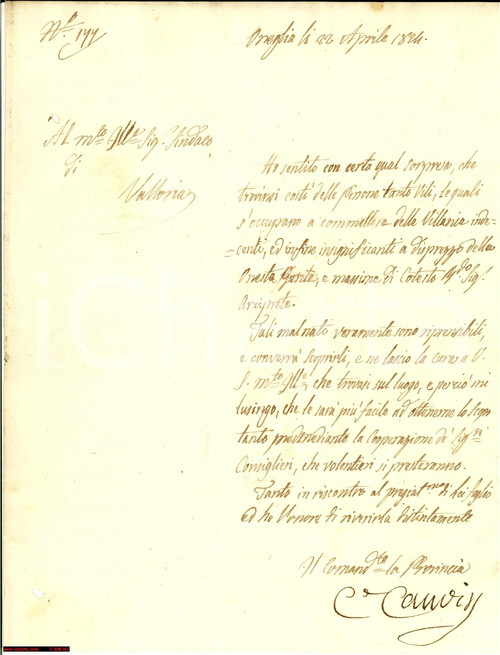 N.º 177
Oneglia li 22 Aprile 1824.
Al m.to Ill.e Sig.r Sindaco
di
Valloria
Ho sentito con certa qual sorpresa, che
trovinsi costì delle Persone tanto Vili, le quali
s'occupano a commettere delle Villanie inde-
=centi, ed infine insignificanti a dispreggio delle
Oneste, e massime di Cotesto Sig.r
Arciprete.
Tali malnati veramente sono riprensibili,
e converrà scoprirli, e ne lascio la cura a V.
S. m.to Ill.e, che trovasi sul luogo, e perciò mi
lusingo, che le sarà più facile ad ottenerne lo scopo
tanto mediante la Cooperazione de' Sig.ri
Consiglieri, che volentieri si presteranno.
Tanto in riscontro al di Lei foglio
ed ho l'onore di riverirla distintamente
Il Comand.te la Provincia